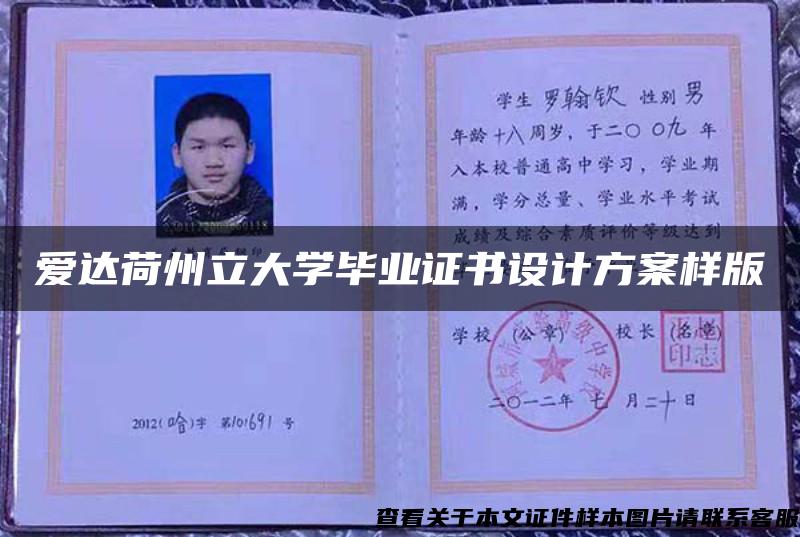 学生 罗翰钦 性别 男
年龄 十八 周岁，于二〇〇九 年
入本校普通高中学习，学业期
满，学分总量、学业水平考试
成绩及综合素质评价等级达到
爱达荷州立大学毕业证书设计方案样版
学校 (公章) 校长 (名章)
二〇一二年 七 月二十日
2012(哈)字 第101691 号
查看关于本文证件样本图片请联系客服